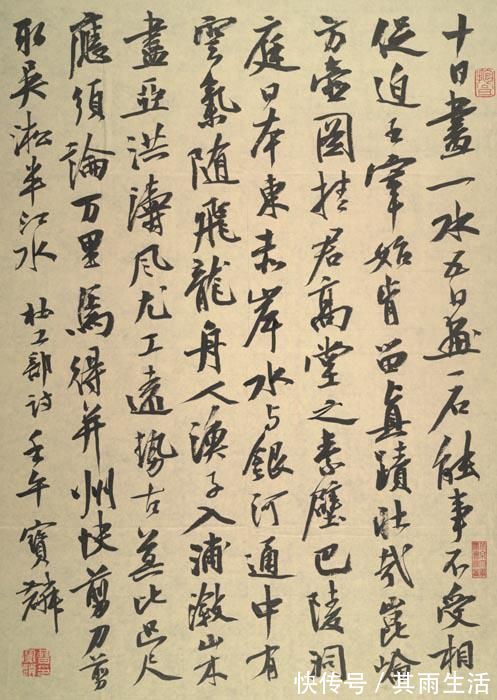 十日畫一水五日画一石能事不受相
促迫王宰始肯留真蹟壯哉崑崙
方壺圖挂君高堂之素壁巴陵洞
庭日本東赤岸水与銀河通中有
雲氣随飛龍舟人漁子入浦漵山木
盡亞洪濤風尤工遠勢古莫比咫尺
應須論万里焉得并州快剪刀剪
取吳淞半江水 杜工部詩 壬午寶麟
快传号/其雨生活